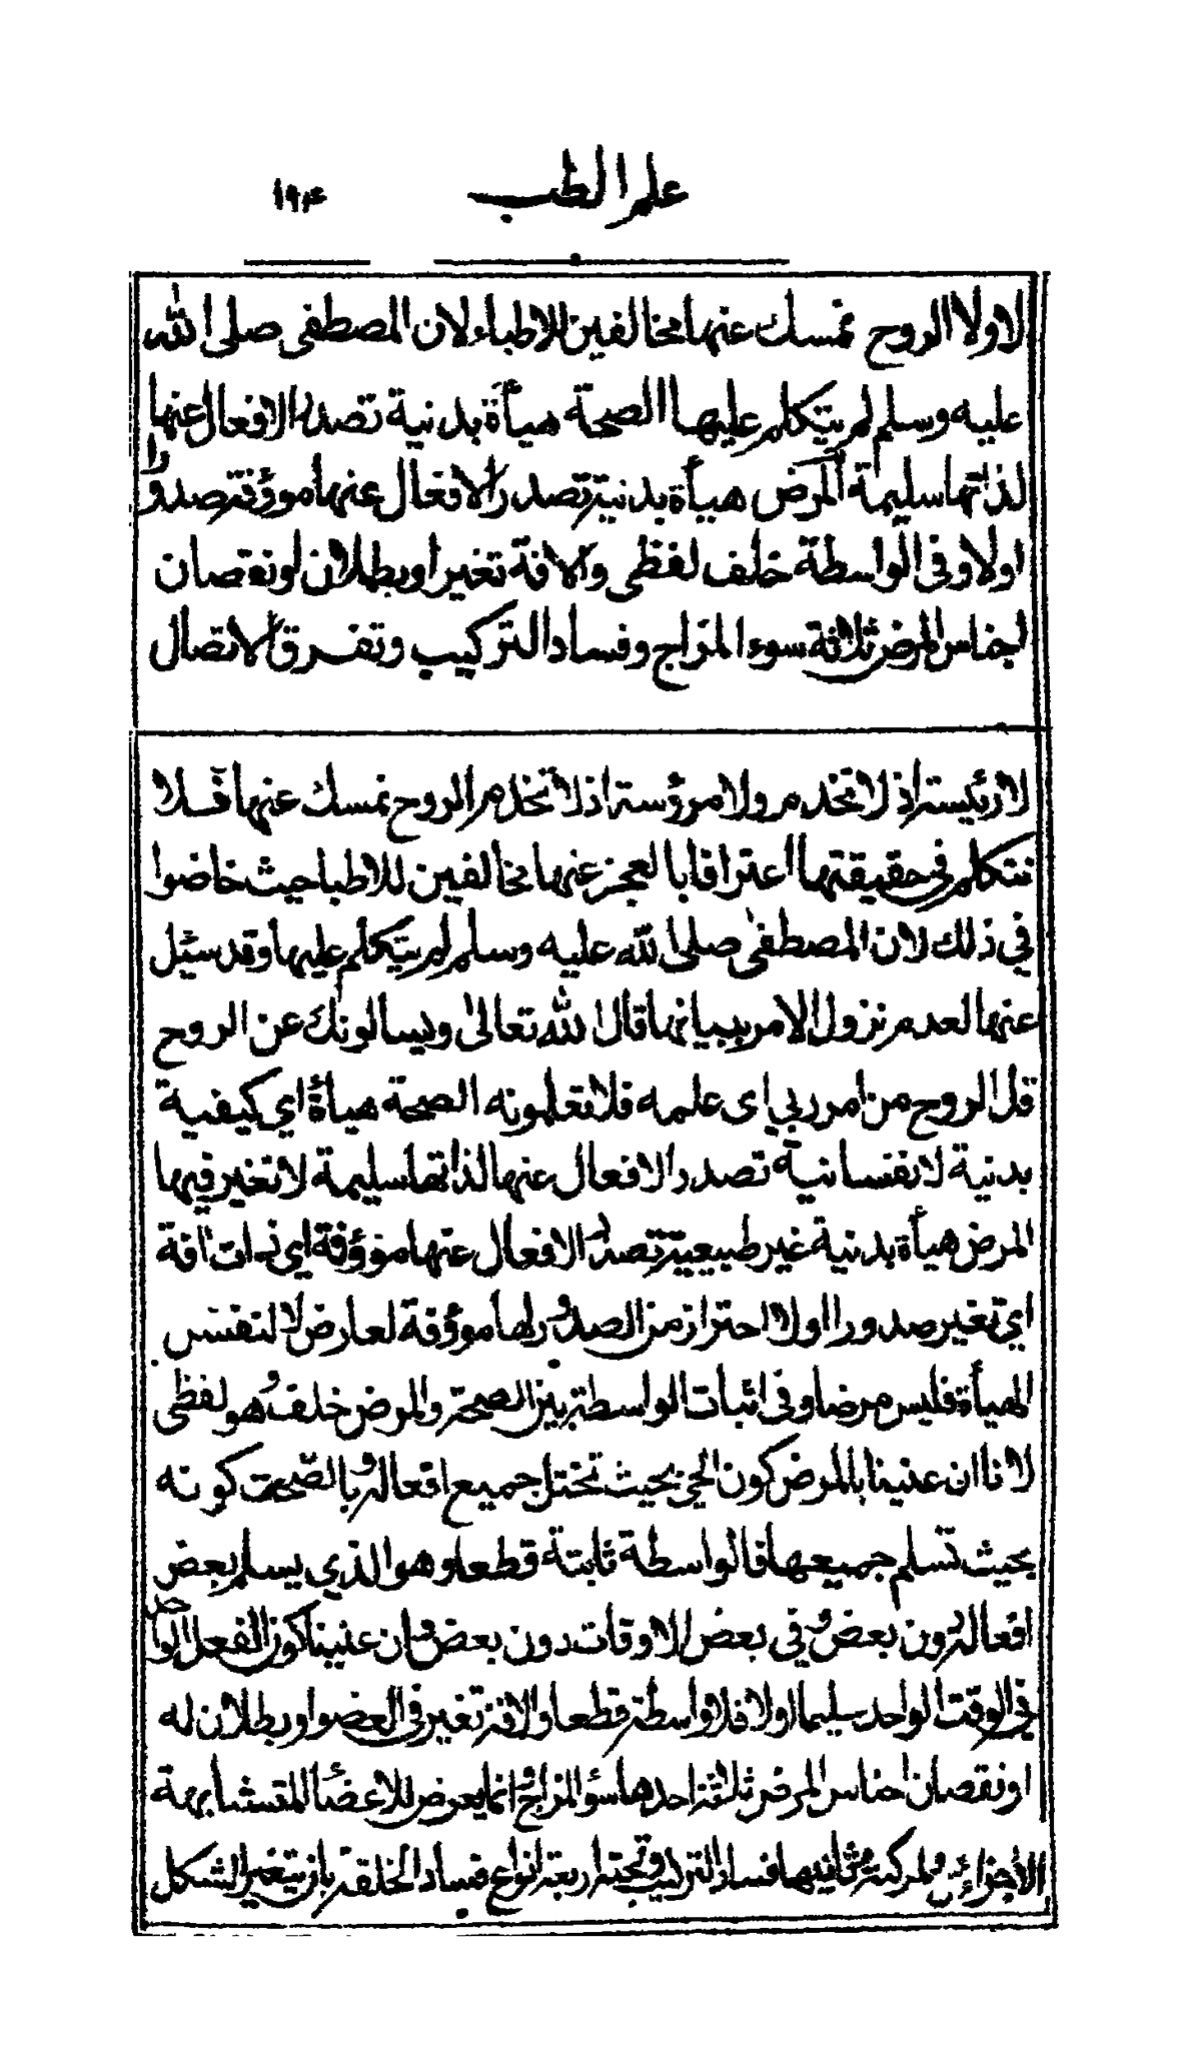 علم الطب ١٩٤
لا ولا الروح نمسك عنها مخالفين للاطباء لان المصطفى صلى الله
عليه وسلم لم يتكلم عليها الصحة هيأة بدنية تصدر الافعال عنها
لذاتها سليمة المرض هيأة بدنية تصدر الافعال عنها مؤوفة صدورا
اولا وفى الواسطة خلف لفظى والافة تغير او بطلان او نقصان
اجناس المرض ثلاثة سوء المزاج وفساد التركيب وتفرق الاتصال
لا رئيسة اذ لا تخدم ولا مرؤسة اذ لا تخدم الروح نمسك عنها فلا
نتكلم في حقيقتها اعترافا بالعجز عنها مخالفين للاطبا حيث خاضوا
في ذلك لان المصطفى صلى الله عليه وسلم لم يتكلم عليها وقد سئل
عنها لعدم نزول الامر ببيانها قال الله تعالى ويسالونك عن الروح
قل الروح من امر ربي اى علمه فلا تعلمونه الصحة هيأة اي كيفية
بدنية لا نفسانية تصدر الافعال عنها لذاتها سليمة لا تغير فيها
المرض هيأة بدنية غير طبيعية تصدر الافعال عنها مؤوفة اي ذات افة
اي تغير صدورا اولا احتراز من الصدور لها مؤوفة لعارض لا لنفس
الهيأة فليس مرضا وفى اثبات الواسطة بين الصحة والمرض خلف وهو لفظى
لانا ان عنينا بالمرض كون الحي بحيث تختل جميع افعاله وبالصحة كونه
بحيث تسلم جميعها فالواسطة ثابتة قطعا وهو الذي يسلم بعض
افعاله دون بعض وفي بعض الاوقات دون بعض وان عنينا كون الفعل الواحد
في الوقت الواحد سليما اولا فلا واسطة قطعا والافة تغير فى العضو او بطلان له
او نقصان اجناس المرض ثلاثة احدها سؤ المزاج وانما يعرض للاعضا المتشابهة
الاجزاء والمركبة وثانيها فساد التركيب وتحته اربعة انواع فساد الخلقة بان يتغير الشكل